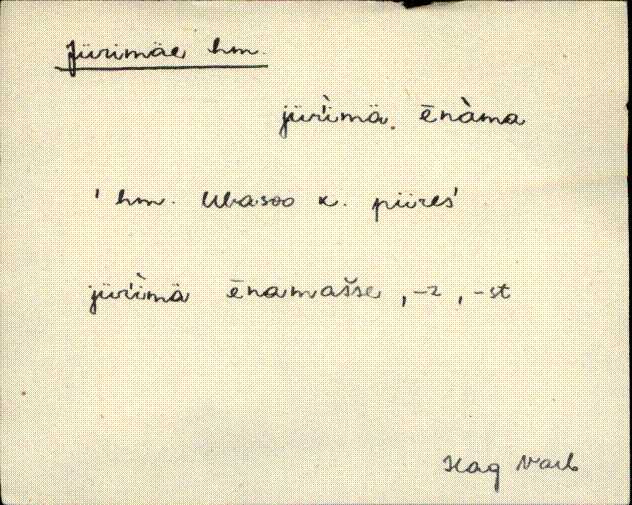 Jürimäe hm.
jür̀imä. ēnàma
' hm. Ubasoo k. piires'
jür̀imä ēnamašse, -z, -st
Hag Marb